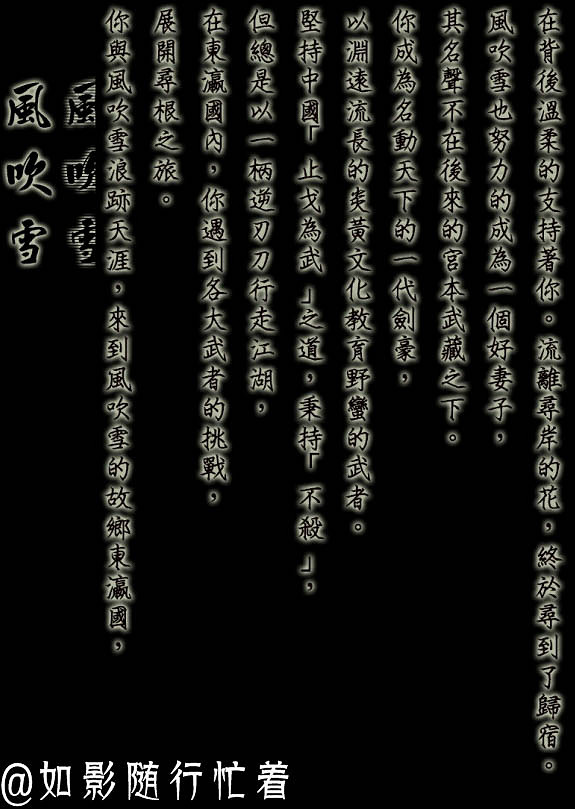 風吹雪
風吹雪
你與風吹雪浪跡天涯，來到風吹雪的故鄉東瀛國，
展開尋根之旅。
在東瀛國內，你遇到各大武者的挑戰，
但總是以一柄逆刃刀行走江湖，
堅持中國「止戈為武」之道，秉持「不殺」，
以淵遠流長的炎黃文化教育野蠻的武者。
你成為名動天下的一代劍豪，
其名聲不在後來的宮本武藏之下。
風吹雪也努力的成為一個好妻子，
在背後溫柔的支持著你。流離尋岸的花，終於尋到了歸宿。
@如影随行忙着